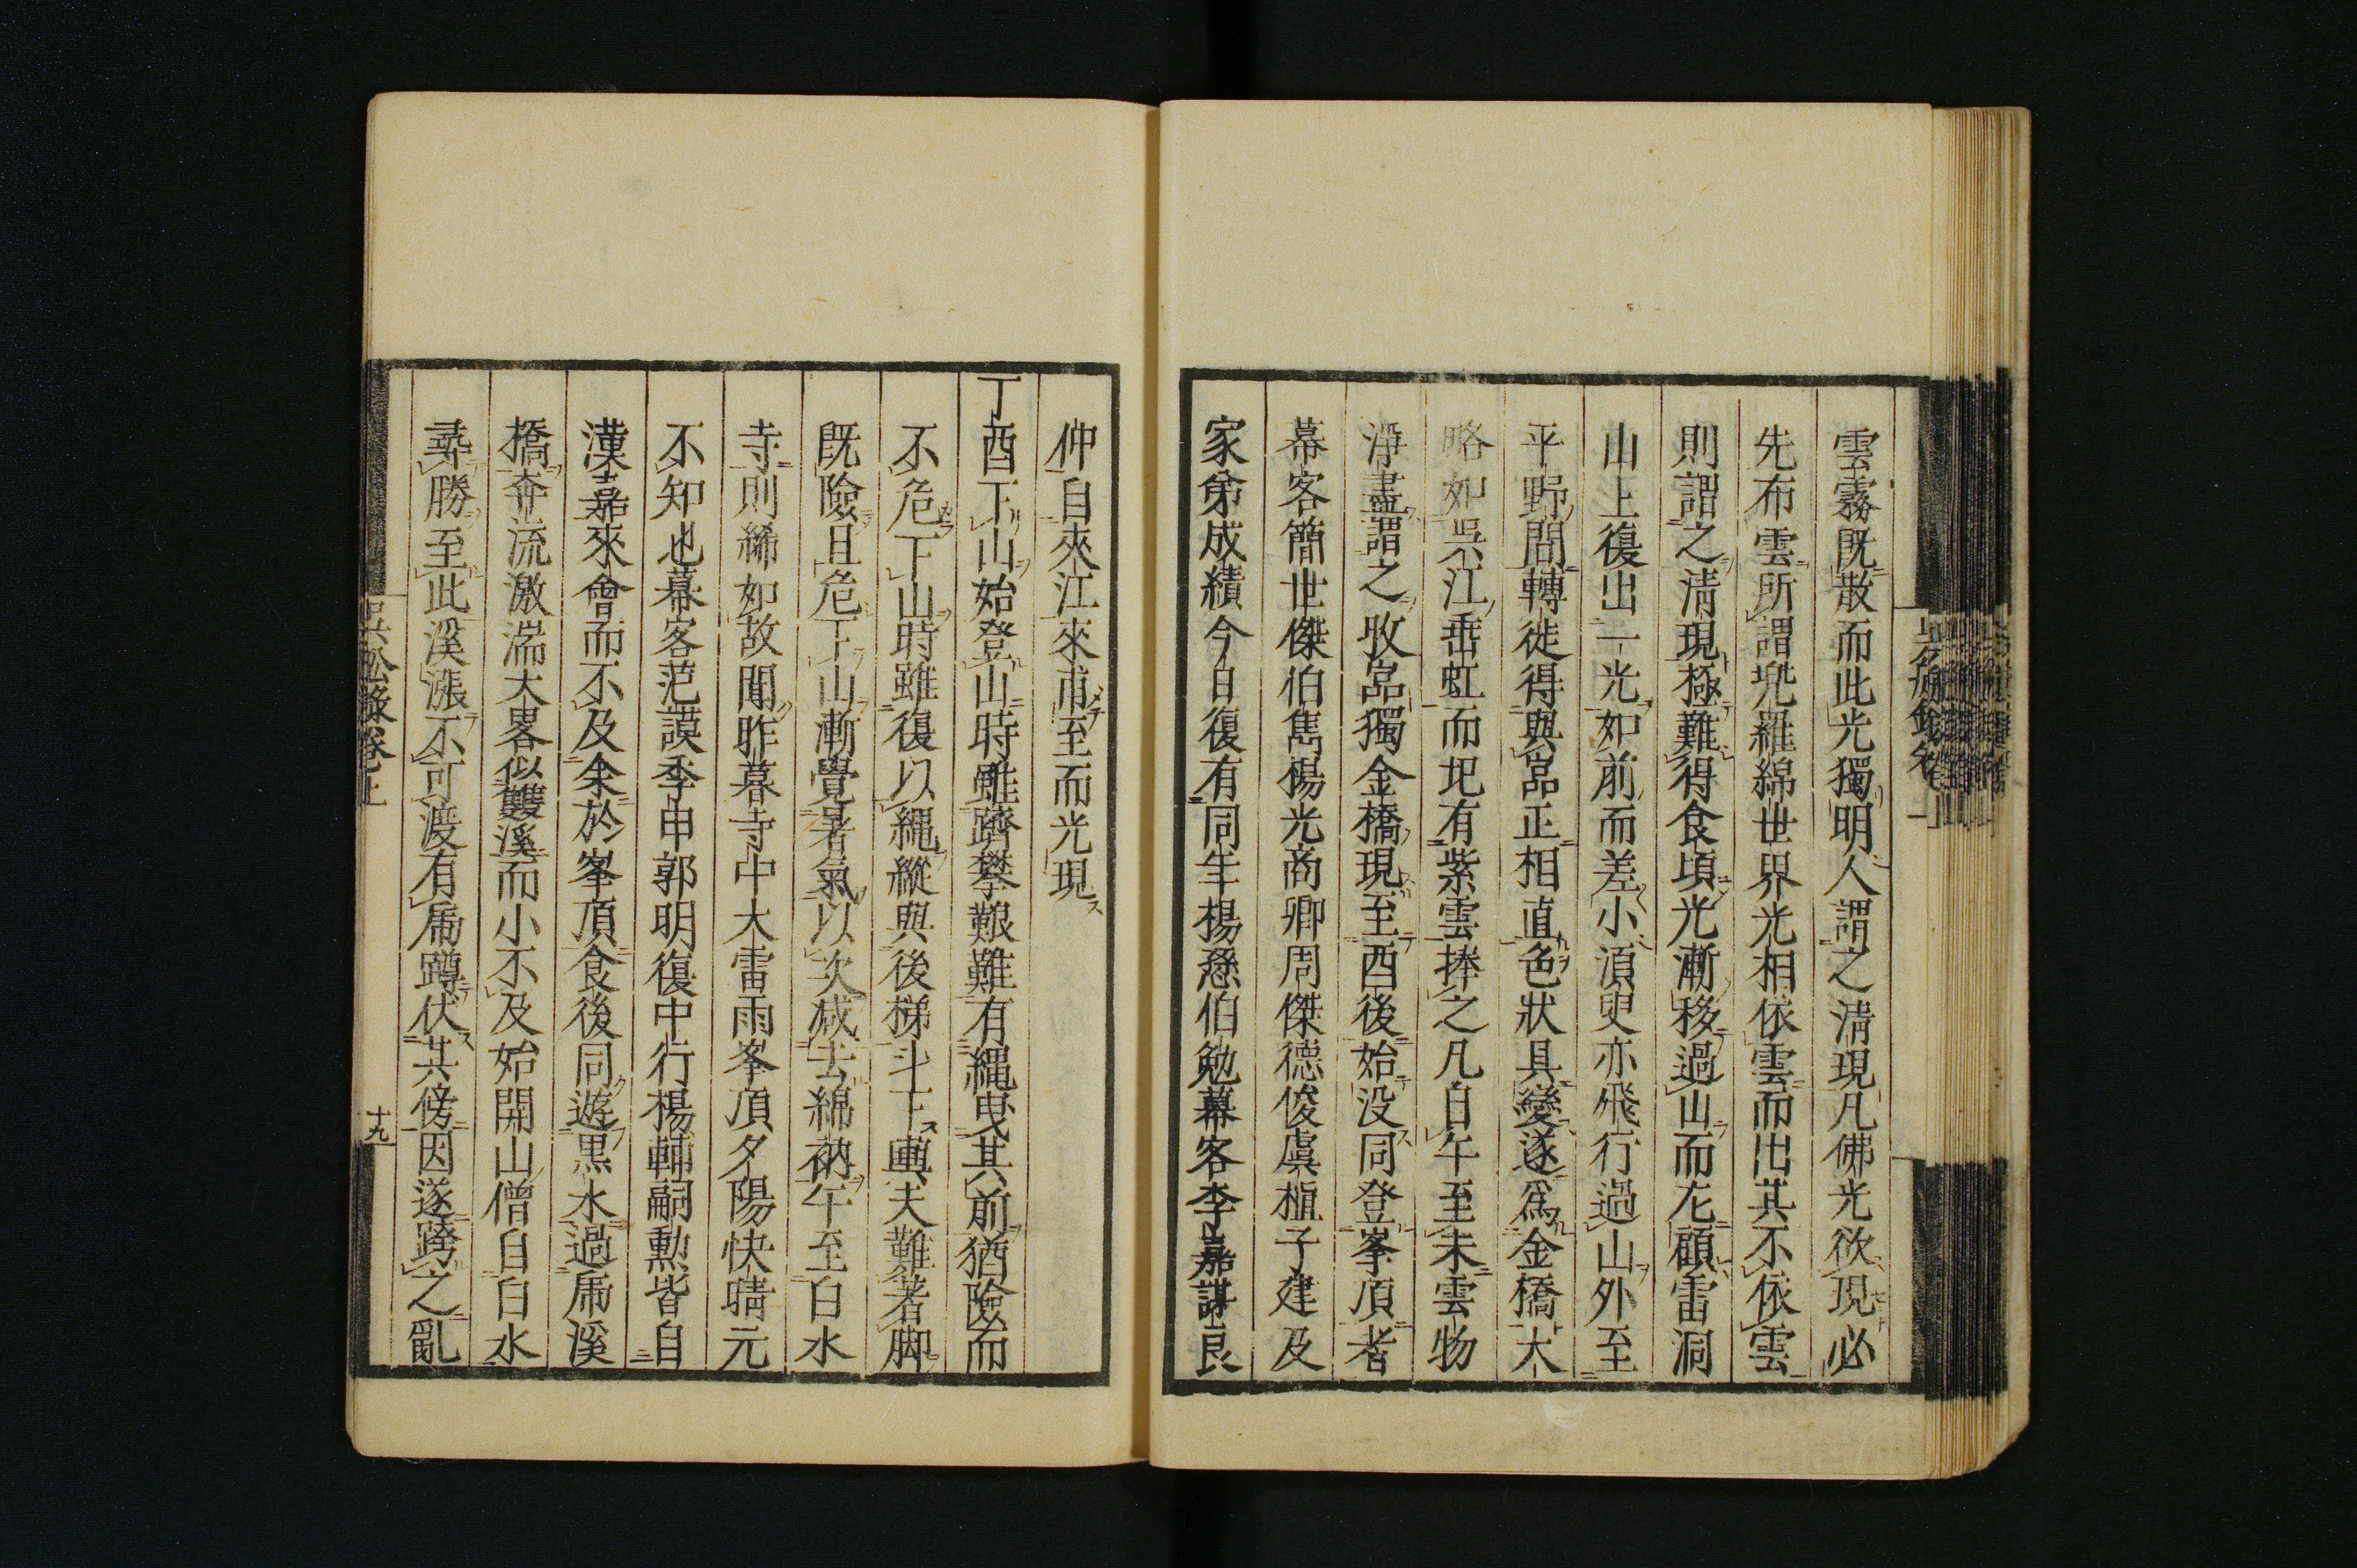 雲霧既散而此光獨明人謂之清現凡佛光欲現必
先布雲所謂兠羅綿世界光相依雲而出其不依雲
則謂之清現極難得食頃光漸移過山而左顧雷洞
山上復出一光如前而差小湏臾亦飛行過山外至
平野間轉徙得與嵓正相直色狀具變遂爲金橋大
略如吳江垂虹而圯有紫雲捧之凡自午至未雲物
淨盡謂之收嵓獨金橋現至酉後始没同登峯頂者
幕客簡世傑伯雋楊光商卿周傑德俊虞植子建及
家弟成績今日復有同年楊愻伯勉幕客李嘉謀良
仲自夾江來甫至而光現
丁酉下山始登山時雖躋攀艱難有繩曳其前猶險而
不危下山時雖復以繩縱與後梯斗下輿夫難著脚
既險且危下山漸覺暑氣以次减去綿衲午至白水
寺則絺如故聞昨暮寺中大雷雨峯頂夕陽快晴元
不知也幕客范謨季申郭明復中行楊輔嗣勲皆自
漢嘉來會而不及余於峯頂食後同遊黒水過乕溪
橋奔流激湍大畧似雙溪而小不及始開山僧自白水
尋勝至此溪漲不可渡有乕蹲伏其傍因遂跨之亂
吳舩錄卷上
十九